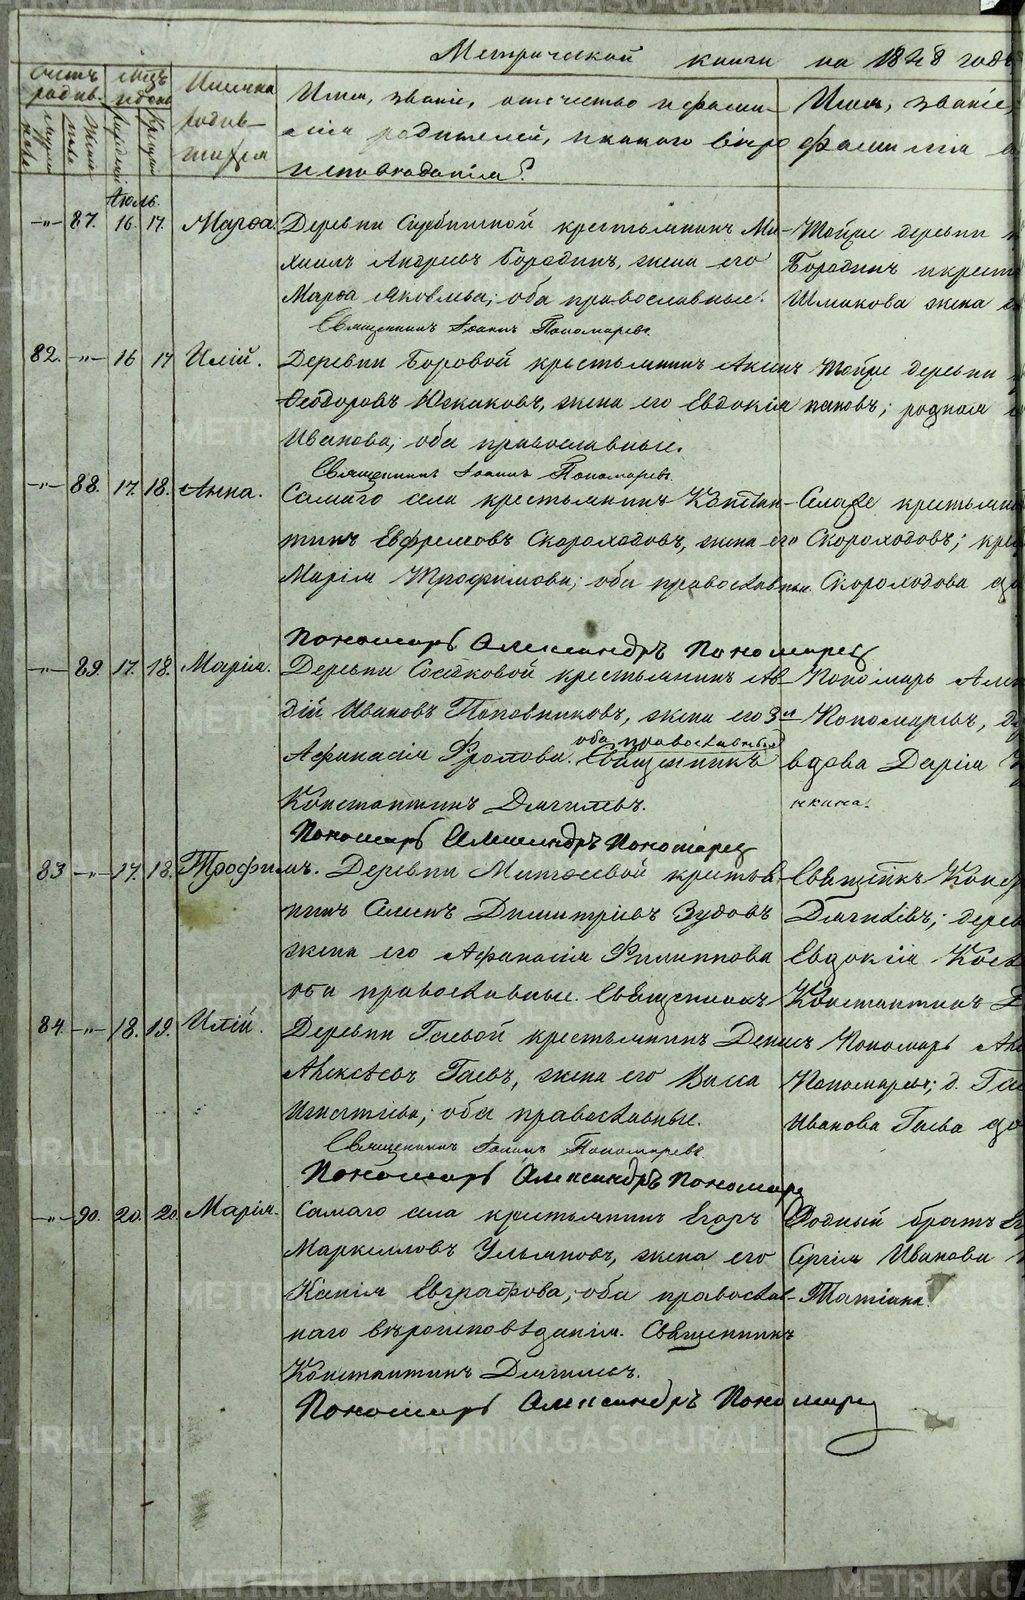 Метрической книги на 18 8 годъ
Счетъ родив.
Мѣс. и день
Имена родив-
шихся
Имя, званіе, отчество и фами-
лія родителей, и какого вѣро
исповѣданія?
Имя, званіе,
фамилія
мужеска
пола
женск
рожденія
крещен
Іюль.
-"- 87. 16. 17. Марѳа. Деревни крестьянинъ Ми-
хаилъ Андреевъ Бородинъ, жена его
Марѳа Яковлева; оба православные.
Священникъ Іоаннъ Пономаревъ.
Тойже деревни
Бородинъ и крест
Шмакова жена
82. -"- 16 17 Илій. Деревни Боровой крестьянинъ
Ѳеодоровъ Южаковъ, жена его Евдокія
Иванова; оба православные.
Священникъ Іоаннъ Пономаревъ.
Тойже деревни
каковъ; родная
-"- 88. 17. 18. Анна. Самаго села крестьянинъ Констан-
тинъ Евфремовъ Скороходовъ, жена его
Марія Трофимова; оба православные.
Пономарь Александръ Пономаревъ
Села же крестьянин
Скороходовъ; кре
Скороходова до
-"- 89. 17. 18. Марія. Деревни крестьянинъ Ав-
дій Ивановъ Поповниковъ, жена его
оба православные
Афанасія Фролова. Священникъ
Константинъ Дягилевъ.
Пономарь Александръ Пономаревъ
Пономарь Алек
Пономаревъ,
вдова Дарія
нкина.
83 -"- 17. 18. Трофимъ. Деревни крестья
нинъ Димитріевъ Зудовъ
жена его Афанасія Филиппова
оба православные. Священникъ
Константинъ
Священникъ Конс
Дягилевъ; дерев
Евдокія
84. -"- 18. 19. Илій. Деревни Гаевой крестьянинъ Денисъ
Алексѣевъ Гаевъ, жена его Васса
Игнатіева; оба православные.
Священникъ Іоаннъ Пономаревъ.
Пономарь Александръ Пономарев
Пономарь Але
Пономаревъ; д. Гае
Иванова Гаева до
-"- 90. 20. 20. Марія. Самаго села крестьянинъ Егоръ
Маркелловъ Ульяновъ, жена его
Ксенія Евграфова; оба православ-
наго вѣроисповѣданія. Священникъ
Константинъ Дягилевъ.
Пономарь Александръ Пономарев
Родный братъ
Сергія Иванова
Татіана.
METRIKI.GASO-URAL.RU